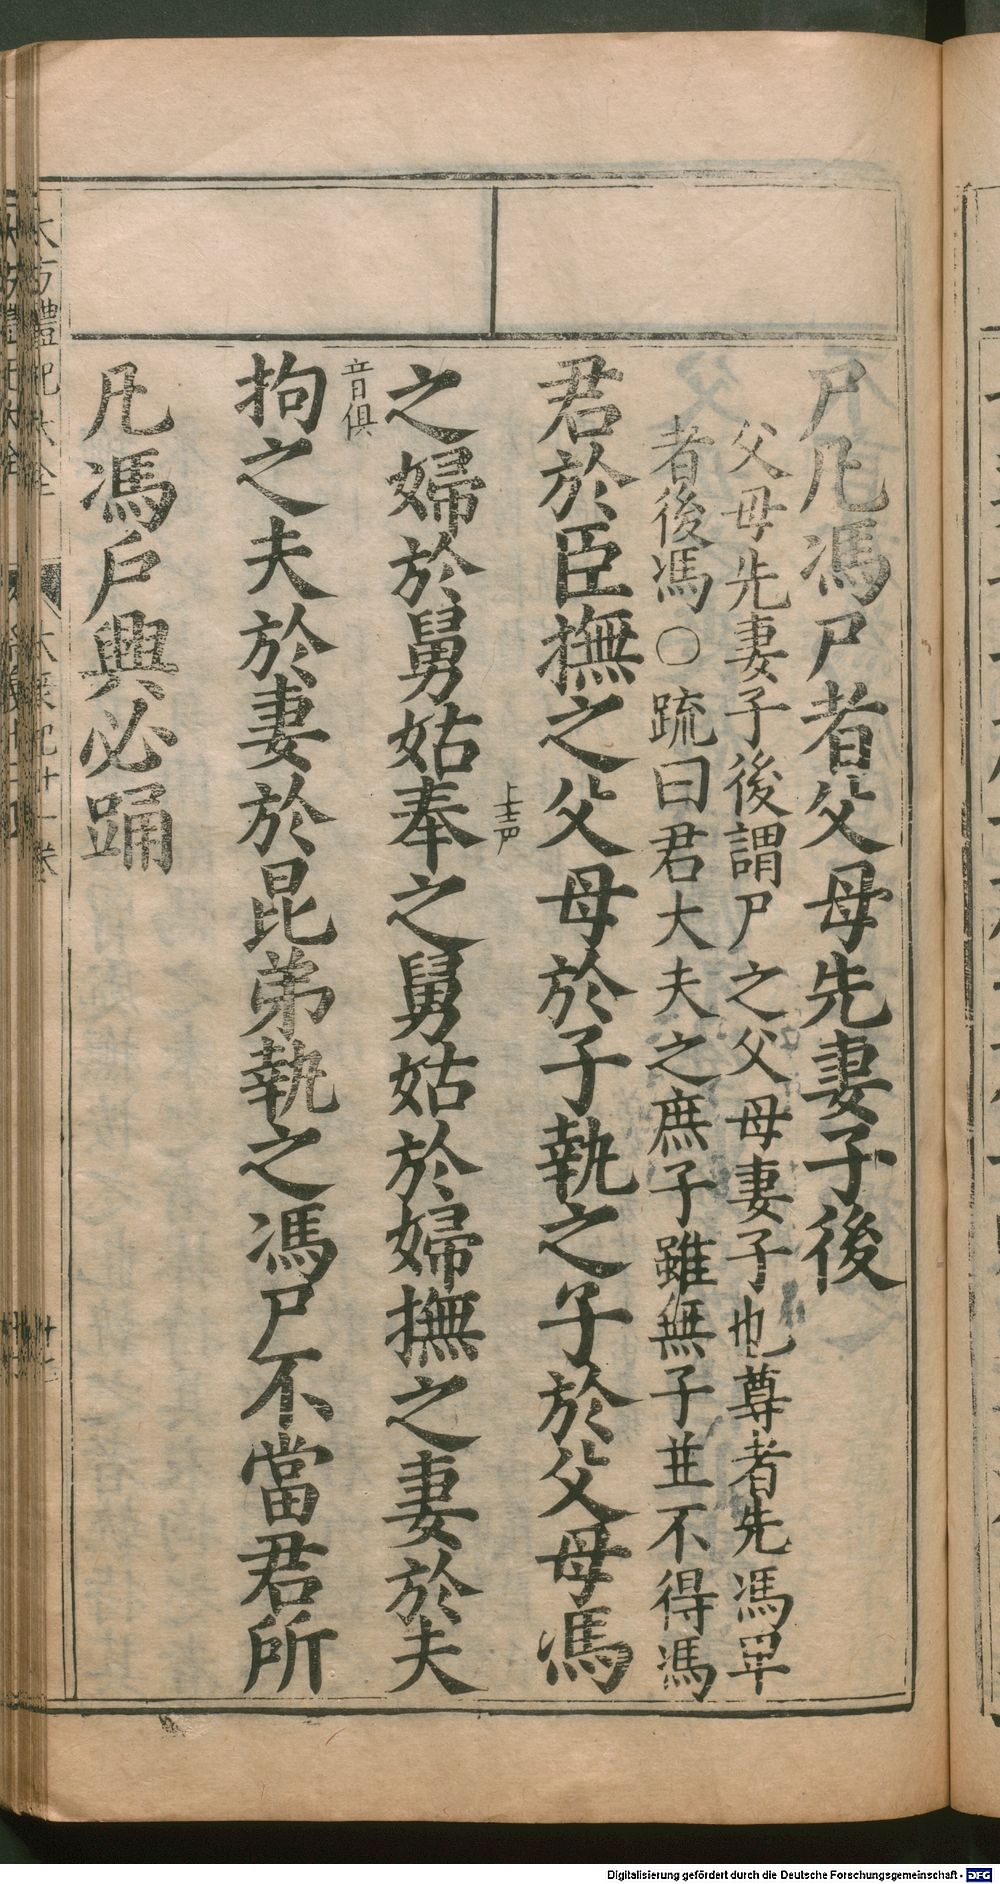 尸凡馮尸者父母先妻子後
父母先妻子後謂尸之父母妻子也尊者先馮卑
者後馮○疏曰君大夫之庶子雖無子並不得馮
君於臣撫之父母於子執之子於父母馮
上聲
之婦於舅姑奉之舅姑於婦撫之妻於夫
音俱
拘之夫於妻於昆弟執之馮尸不當君所
凡馮尸興必踊
Digitalisierung gefördert durch die Deutsche Forschungsgemeinschaft - DFG